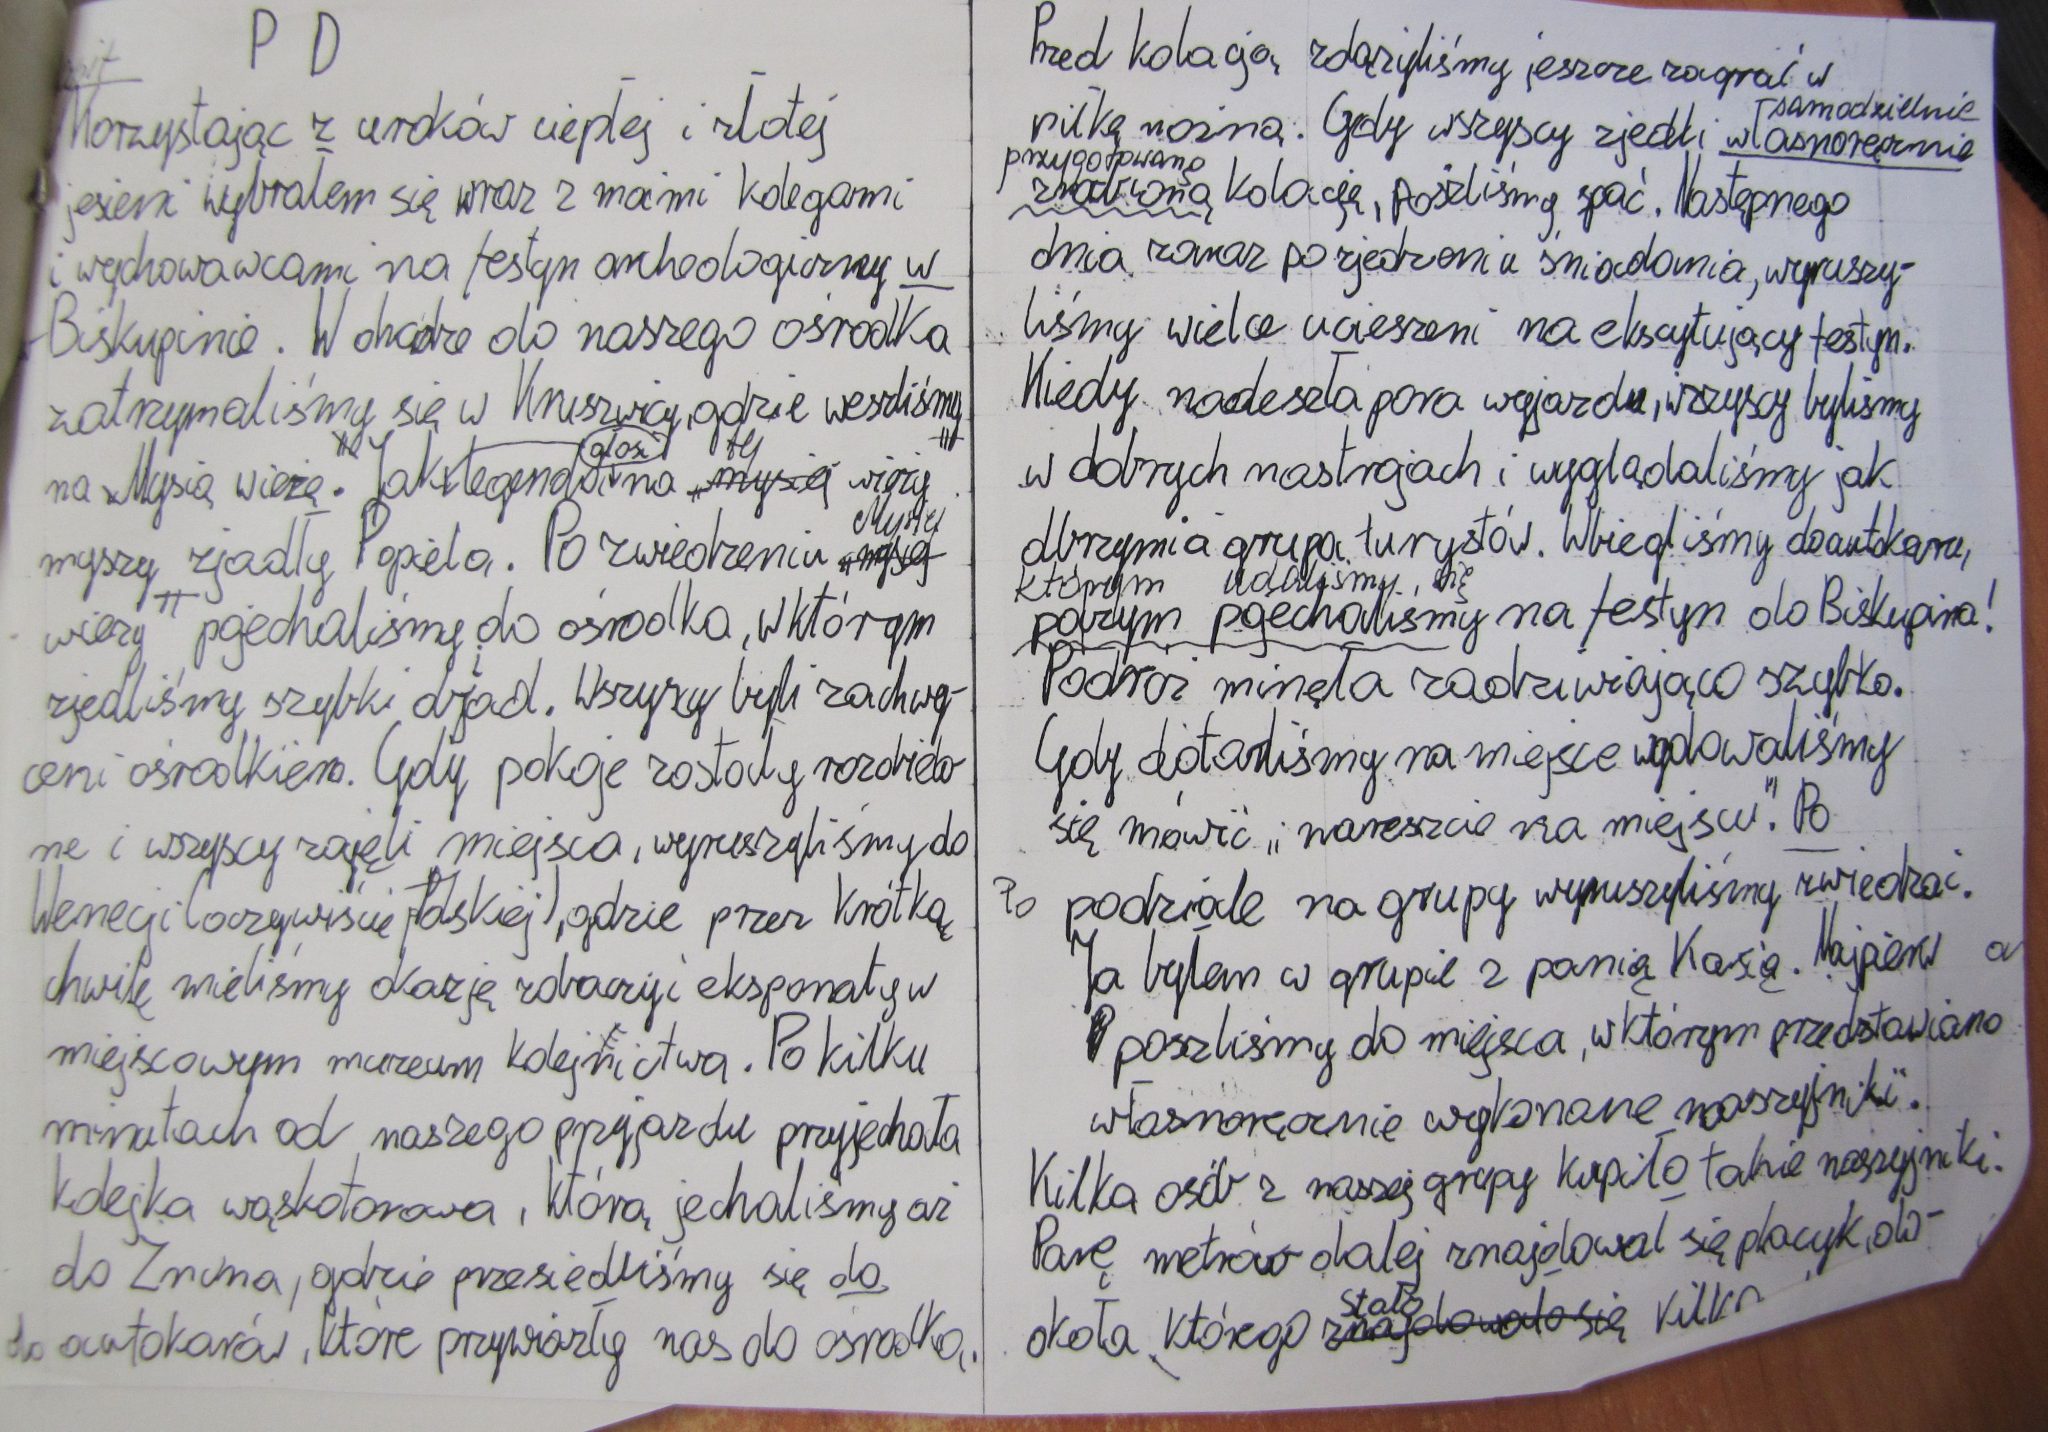 P D
Korzystając z uroków ciepłej i złotej
jesieni wybrałem się wraz z moimi kolegami
i wychowawcami na festyn archeologiczny w
Biskupinie. W drodze do naszego ośrodka
zatrzymaliśmy się w Kruszwicy, gdzie weszliśmy
na „Mysią wieżę". Jak legenda głosi na tej wieży
myszy zjadły Popiela. Po zwiedzeniu „Mysiej
wieży" pojechaliśmy do ośrodka, w którym
zjedliśmy szybki objad. Wszyscy byli zachwy-
ceni ośrodkiem. Gdy pokoje zostały rozdielo-
ne i wszyscy zajęli miejsca, wyruszyliśmy do
Wenecji (oczywiście Polskiej), gdzie przez krótką
chwilę mieliśmy okazję zobaczyć eksponaty w
miejscowym muzeum kolejnictwa. Po kilku
minutach od naszego przyjazdu przyjechała
kolejka wąskotorowa, którą jechaliśmy aż
do Żnina, gdzie przesiedliśmy się do
do autokarów, które przywiozły nas do ośrodka.
Przed kolacją zdążyliśmy jeszcze zagrać w
samodzielnie
piłkę nożną. Gdy wszyscy zjedli własnoręcznie
przygotowaną
zrobioną kolację, poszliśmy spać. Następnego
dnia zaraz po zjedzeniu śniadania, wyruszy-
liśmy wielce ucieszeni na ekscytujący festyn.
Kiedy nadeszła pora wyjazdu, wszyscy byliśmy
w dobrych nastrojach i wyglądaliśmy jak
olbrzymia grupa turystów. Wbiegliśmy do autokaru,
którym udaliśmy się
poczym pojechaliśmy na festyn do Biskupina!
Podróż minęła zadziwiająco szybko.
Gdy dotarliśmy na miejsce
się mówić „nareszcie na miejscu". Po
Po podziale na grupy wyruszyliśmy zwiedzać.
Ja byłem w grupie z panią Kasią. Najpierw
poszliśmy do miejsca, w którym przedstawiano
własnoręcznie wykonane naszyjniki.
Kilka osób z naszej grupy kupiło takie naszyjniki.
Parę metrów dalej znajdował się placyk, do-
stało
okoła którego znajdowało się kilka